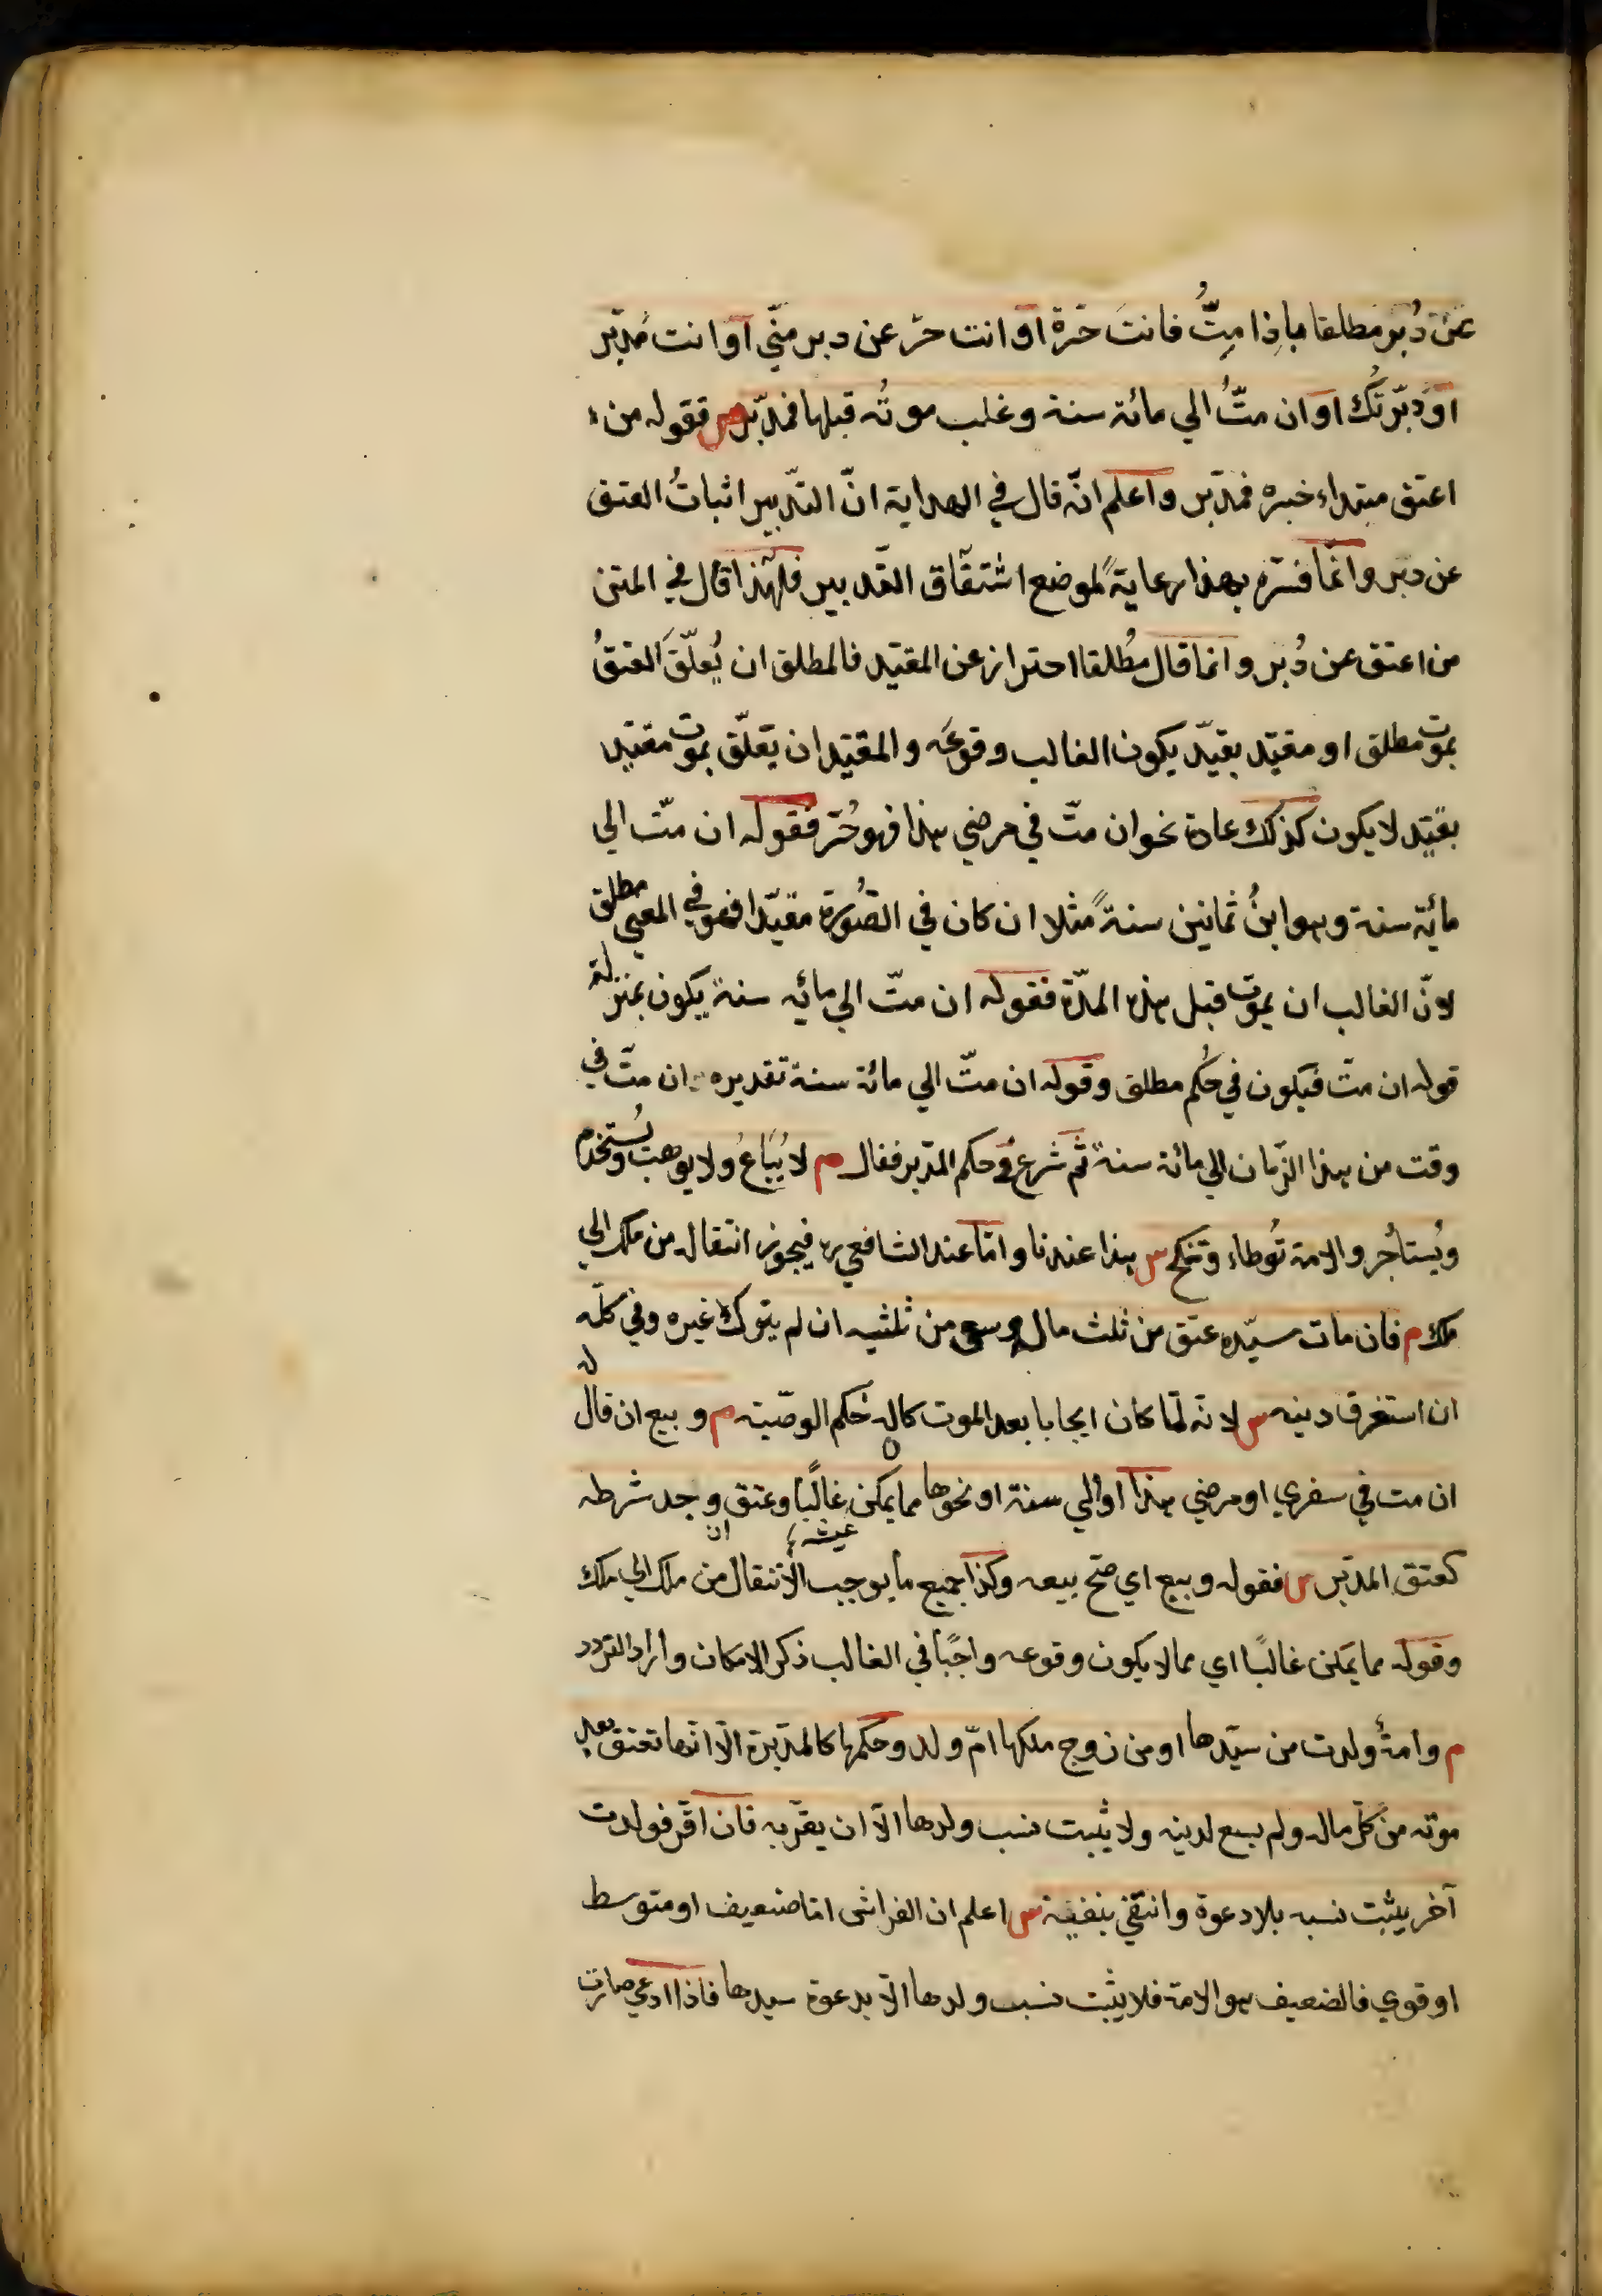 عن دُبُر مطلقا باِذا مِتُّ فانتَ حّرة او انت حرّ عن دبر منّي او انت مُدبّر
او دَبّرتُك او ان متُّ الي مائة سنة وغلب موتُه قبلها فمدبّر س فقوله من
اعتق مبتداء خبره فمدبّر واعلم انّه قال في الهداية انّ التدّبير اثباتُ العتق
عن دبر وانّما فسّره بهذا رعايةً لموضع اشتقاق التّدبير فلهذا قال في المتن
من اعتق عن دُبر وانما قال مُطلقا احتراز عن المقيّد فالمطلق ان يُعلّقَ العتقُ
بموت مطلق او مقيّد بقيّد يكون الغالب وقوعَه والمقيّد ان يّعلّق بموت مقيّد
بقيّد لا يكون كذلك عادة نحو ان متّ في مرضي هذا فهو حُرّ فقوله ان متّ الي
مائة سنة وهو ابنُ ثمانين سنةً مثلا ان كان في الصُّورة مقيّدا فهو في المعني مطلق
لانّ الغالب ان يموت قبل هذه المدّة فقوله ان متّ الي مائه سنة يكون بمنزلة
قوله ان متّ فيكون في حُكم مطلق وقوله ان متّ الي مائة سنة تقديره ان متّ في
وقت من هذا الزّمان الي مائة سنة ثم شرع في حكم المدّبر فقال م لا يُبَاعُ ولا يوهب ويُستخدم
ويُستأجُر والامة تُوطاء وتنكح س هذا عندنا وامّا عند الشافعي ره فيجوز انتقاله من ملك الي
ملك م فان مات سيّده عتق من ثلث ماله وسعي من ثلثيه ان لم يترك غيره وفي كلّه
ان استغرق دينه س لانّه لمّا كان ايجابا بعد الموت كاله حُكم الوصّيته م وبيع ان قال له
ان مت في سفري او مرضي هذا او الي سنة او نحوها مما يمكن غالبًا وعتق ان وجد شرطه
كعتق المدبّر س فقوله وبيع اي صحّ بيعه وكذا جميع ما يوجب الانتقال من ملك الي ملك
وقوله مما يمكن غالبًا اي مما لا يكون وقوعه واجبًا في الغالب ذكر الامكان واراد التردد
م وامةٌ ولدت من سيّدها او من زوج ملكها امّ ولد وحكمها كالمدبّرة الّا انّها تعتق بعد
موته من كلّ ماله ولم يسع لدينه ولا يثبت نسب ولدها الّا ان يقرّ به فان اقرّ فولدت
آخر يثبت نسبه بلا دعوة وانتفي بنفيه س اعلم ان الفراش امّا ضعيف او متوسط
او قوي فالضعيف هو الامة فلا يثبت نسب ولدها الّا بدعوة سيدها فاذا ادعي صارت